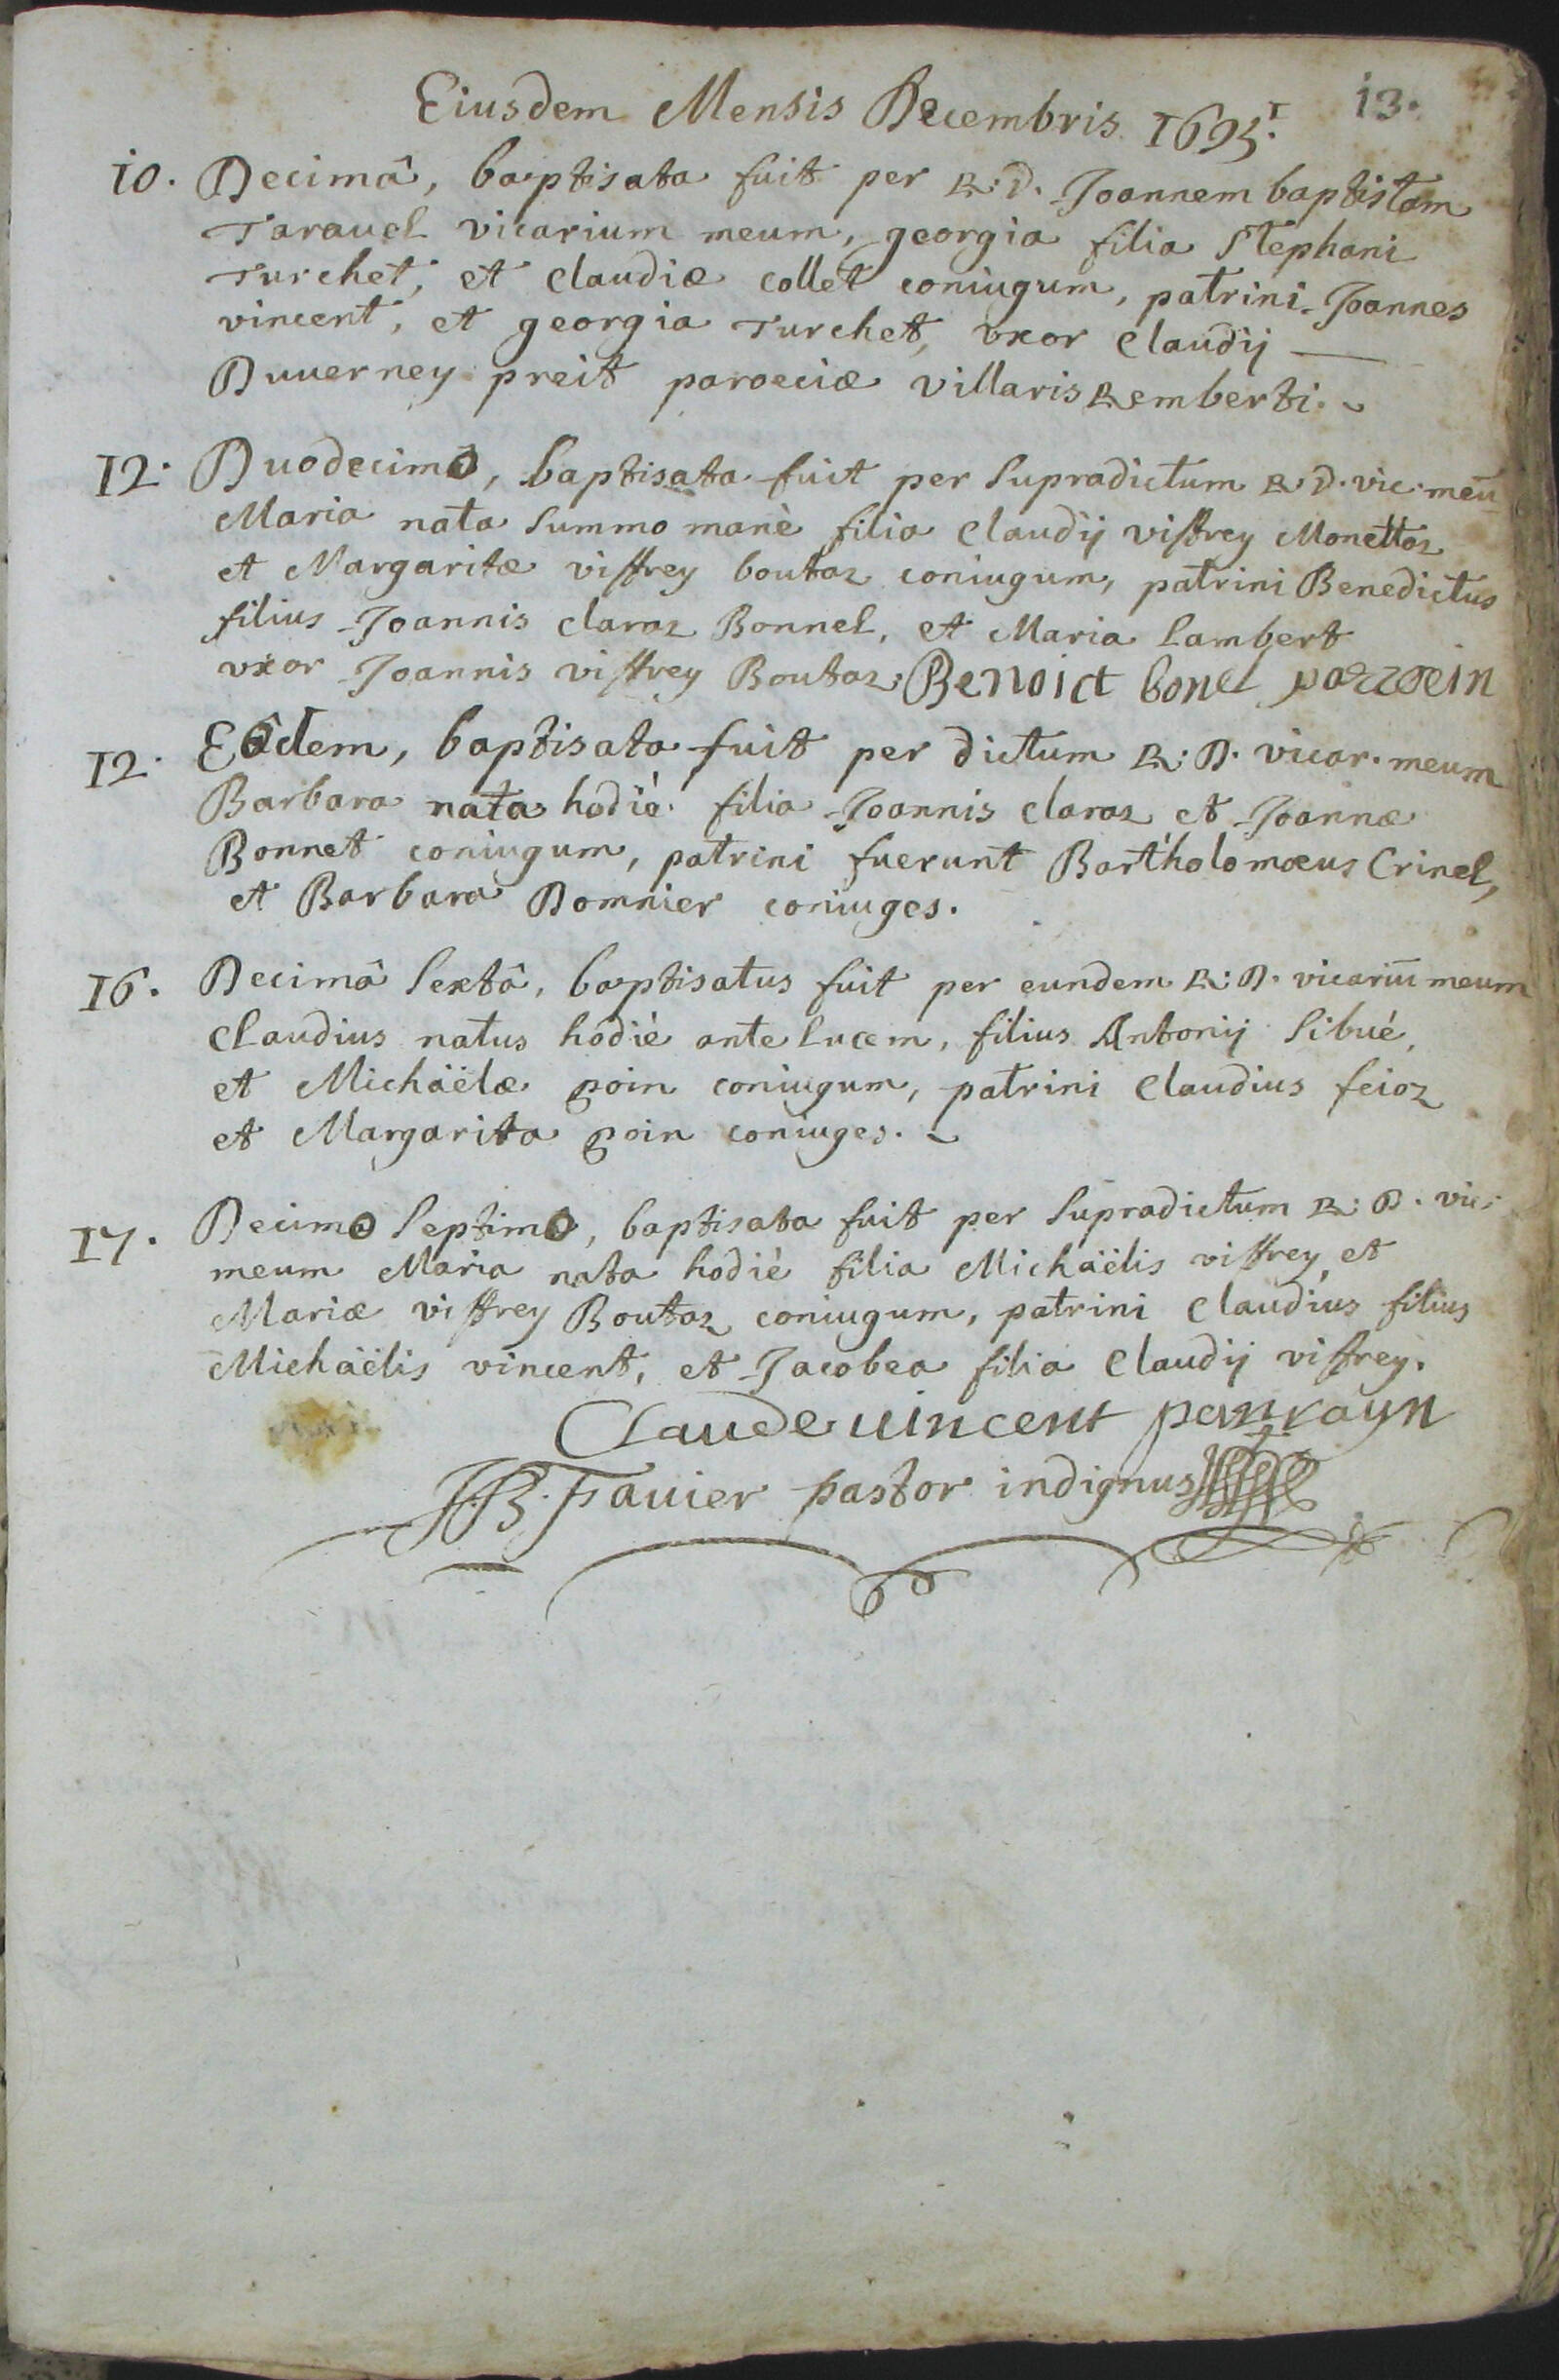 Eiusdem Mensis Decembris 1695.<sup>I</sup> 13.
10. Decimâ, baptisata fuit per R: D. Joannem baptistam
Tarauel vicarium meum, georgia filia Stephani
Turchet, et Claudiæ collet coniugum, patrini Joannes
vincent, et georgia Turchet, vxor Claudij
Duuerney preit paroeciæ villaris Remberti.
12. Duodecimo, baptisata fuit per Supradictum R: D. vic. meū
Maria nata Summo manè filia Claudij viffrey Monettaz
et Margaritæ viffrey boutaz coniugum, patrini Benedictus
filius Joannis claraz Bonnel, et Maria Lambert
vxor Joannis viffrey Boutaz. Benoict bonel parrein
12. Eôdem, baptisata fuit per dictum R: D. vicar. meum
Barbara nata hodiè filia Joannis claraz et Joannæ
Bonnet coniugum, patrini fuerunt Bartholomæus Crinel,
et Barbara Domnier coniuges.
16. Decimâ Sextâ, baptisatus fuit per eundem R: D. vicariū meum
Claudius natus hodiè ante lucem, filius Antonij Sibué,
et Michäëlæ goin coniugum, patrini Claudius feioz
et Margarita goin coniuges.
17. Decimo Septimo, baptisata fuit per Supradictum R: D. vic.
meum Maria nata hodiè filia Michäëlis viffrey et
Mariæ viffrey Boutaz coniugum, patrini Claudius filius
Michäëlis vincent, et Jacobea filia Claudij viffrey.
Claude uincent parrayn
J.B. Fauier pastor indignus